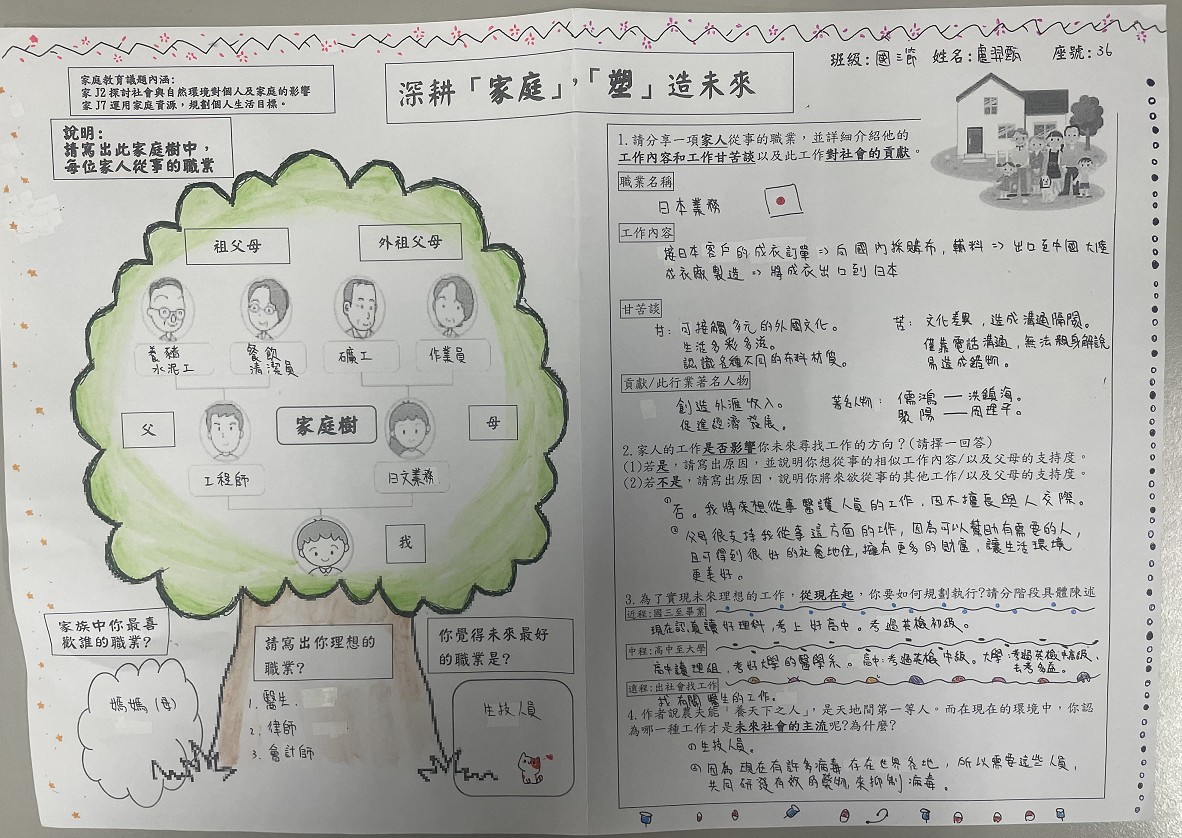 班級:國三節 姓名:盧羿甄 座號:36
家庭教育議題內涵:
家 J2 探討社會與自然環境對個人及家庭的影響
家 J7 運用家庭資源，規劃個人生活目標。
深耕「家庭」，「塑」造未來
說明:
請寫出此家庭樹中，
每位家人從事的職業
祖父母
外祖父母
養豬
水泥工
餐飲
清潔員
礦工
作業員
父
家庭樹
母
工程師
日文業務
我
家族中你最喜
歡誰的職業?
媽媽(母)
請寫出你理想的
職業?
1. 醫生.
2. 律師
3. 會計師
你覺得未來最好
的職業是?
生技人員
1.請分享一項家人從事的職業，並詳細介紹他的
工作內容和工作甘苦談以及此工作對社會的貢獻。
職業名稱
日本業務
工作內容
接日本客戶的成衣訂單 => 向國內採購布，輔料 => 出口至中國大陸
成衣廠製造 => 將成衣出口到日本
甘苦談
甘: 可接觸多元的外國文化。
生活多彩多滋。
認識各種不同的布料材質。
苦: 文化差異，造成溝通隔閡。
僅靠電話溝通，無法親身解說
易造成錯物。
貢獻/此行業著名人物
創造外滙收入。
促進經濟發展。
著名人物: 儒鴻 — 洪鎮海。
聚陽 — 周理平。
2.家人的工作是否影響你未來尋找工作的方向?(請擇一回答)
(1)若是，請寫出原因，並說明你想從事的相似工作內容/以及父母的支持度。
(2)若不是，請寫出原因，說明你將來欲從事的其他工作/以及父母的支持度。
① 否。我將來想從事醫護人員的工作，因不擅長與人交際。
② 父母很支持我從事這方面的工作，因為可以幫助有需要的人，
且可得到很好的社會地位，擁有更多的財富，讓生活環境
更美好。
3.為了實現未來理想的工作，從現在起，你要如何規劃執行?請分階段具體陳述
近程:國三至畢業
現在認真讀好理科，考上好高中。考過英檢初級。
中程:高中至大學
高中讀理組，考好大學的醫學系。高中:考過英檢中級。大學:考過英檢中高級，
去考多益。
遠程:出社會找工作
找有關醫生的工作。
4.作者說農夫能「養天下之人」，是天地間第一等人。而在現在的環境中，你認
為哪一種工作才是未來社會的主流呢?為什麼?
① 生技人員。
② 因為現在有許多病毒存在世界各地，所以需要這些人員，
共同研發有效的藥物來抑制病毒。